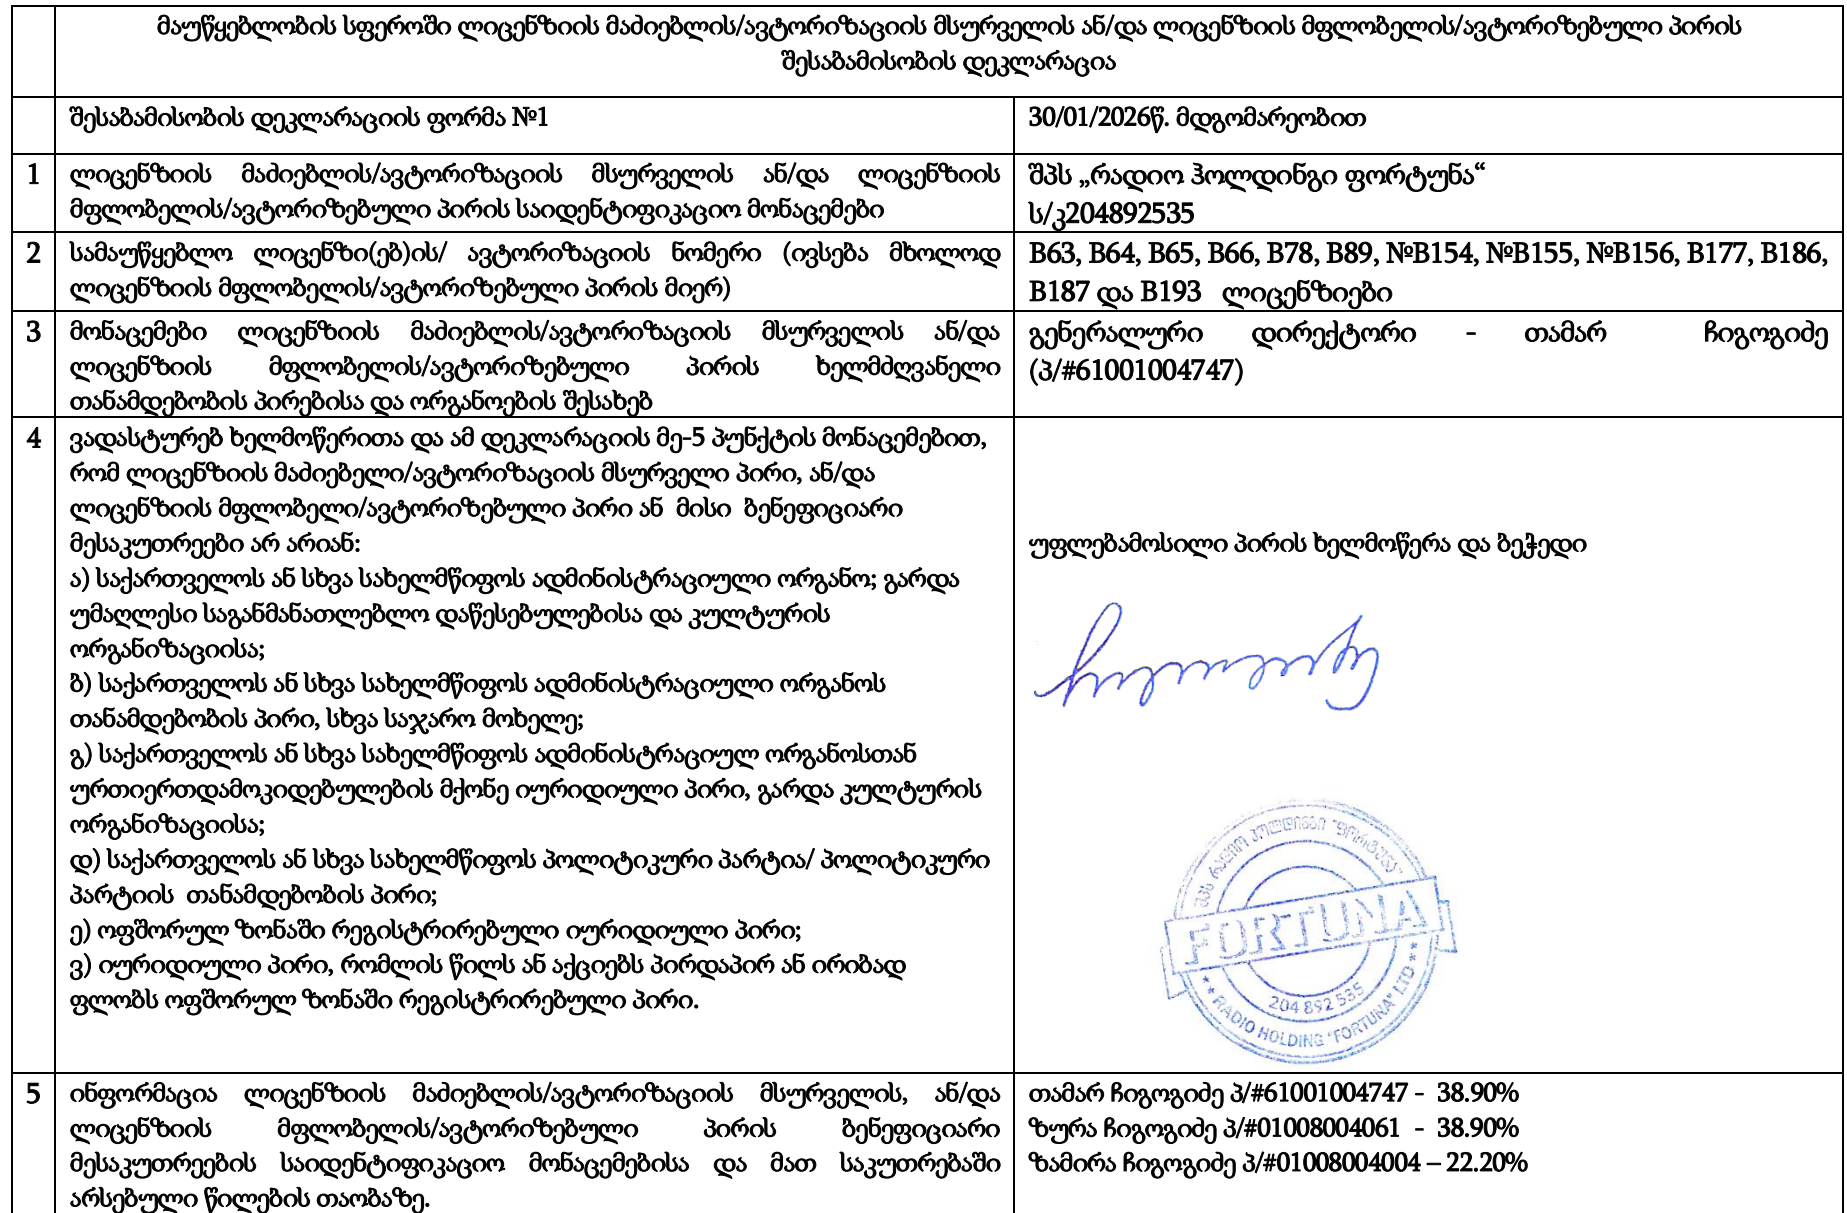 მაუწყებლობის სფეროში ლიცენზიის მაძიებლის/ავტორიზაციის მსურველის ან/და ლიცენზიის მფლობელის/ავტორიზებული პირის
შესაბამისობის დეკლარაცია
შესაბამისობის დეკლარაციის ფორმა №1
30/01/2026წ. მდგომარეობით
1
ლიცენზიის მაძიებლის/ავტორიზაციის მსურველის ან/და ლიცენზიის
მფლობელის/ავტორიზებული პირის საიდენტიფიკაციო მონაცემები
შპს „რადიო ჰოლდინგი ფორტუნა“
ს/კ204892535
2
სამაუწყებლო ლიცენზი(ებ)ის/ ავტორიზაციის ნომერი (ივსება მხოლოდ
ლიცენზიის მფლობელის/ავტორიზებული პირის მიერ)
B63, B64, B65, B66, B78, B89, №B154, №B155, №B156, B177, B186,
B187 და B193 ლიცენზიები
3
მონაცემები ლიცენზიის მაძიებლის/ავტორიზაციის მსურველის ან/და
ლიცენზიის მფლობელის/ავტორიზებული პირის ხელმძღვანელი
თანამდებობის პირებისა და ორგანოების შესახებ
გენერალური დირექტორი - თამარ ჩიგოგიძე
(პ/#61001004747)
4
ვადასტურებ ხელმოწერითა და ამ დეკლარაციის მე-5 პუნქტის მონაცემებით,
რომ ლიცენზიის მაძიებელი/ავტორიზაციის მსურველი პირი, ან/და
ლიცენზიის მფლობელი/ავტორიზებული პირი ან მისი ბენეფიციარი
მესაკუთრეები არ არიან:
ა) საქართველოს ან სხვა სახელმწიფოს ადმინისტრაციული ორგანო; გარდა
უმაღლესი საგანმანათლებლო დაწესებულებისა და კულტურის
ორგანიზაციისა;
ბ) საქართველოს ან სხვა სახელმწიფოს ადმინისტრაციული ორგანოს
თანამდებობის პირი, სხვა საჯარო მოხელე;
გ) საქართველოს ან სხვა სახელმწიფოს ადმინისტრაციულ ორგანოსთან
ურთიერთდამოკიდებულების მქონე იურიდიული პირი, გარდა კულტურის
ორგანიზაციისა;
დ) საქართველოს ან სხვა სახელმწიფოს პოლიტიკური პარტია/ პოლიტიკური
პარტიის თანამდებობის პირი;
ე) ოფშორულ ზონაში რეგისტრირებული იურიდიული პირი;
ვ) იურიდიული პირი, რომლის წილს ან აქციებს პირდაპირ ან ირიბად
ფლობს ოფშორულ ზონაში რეგისტრირებული პირი.
უფლებამოსილი პირის ხელმოწერა და ბეჭედი
შპს რადიო ჰოლდინგი "ფორტუნა"
FORTUNA
204 892 535
** RADIO HOLDING "FORTUNA" LTD **
5
ინფორმაცია ლიცენზიის მაძიებლის/ავტორიზაციის მსურველის, ან/და
ლიცენზიის მფლობელის/ავტორიზებული პირის ბენეფიციარი
მესაკუთრეების საიდენტიფიკაციო მონაცემებისა და მათ საკუთრებაში
არსებული წილების თაობაზე.
თამარ ჩიგოგიძე პ/#61001004747 - 38.90%
ზურა ჩიგოგიძე პ/#01008004061 - 38.90%
ზამირა ჩიგოგიძე პ/#01008004004 – 22.20%